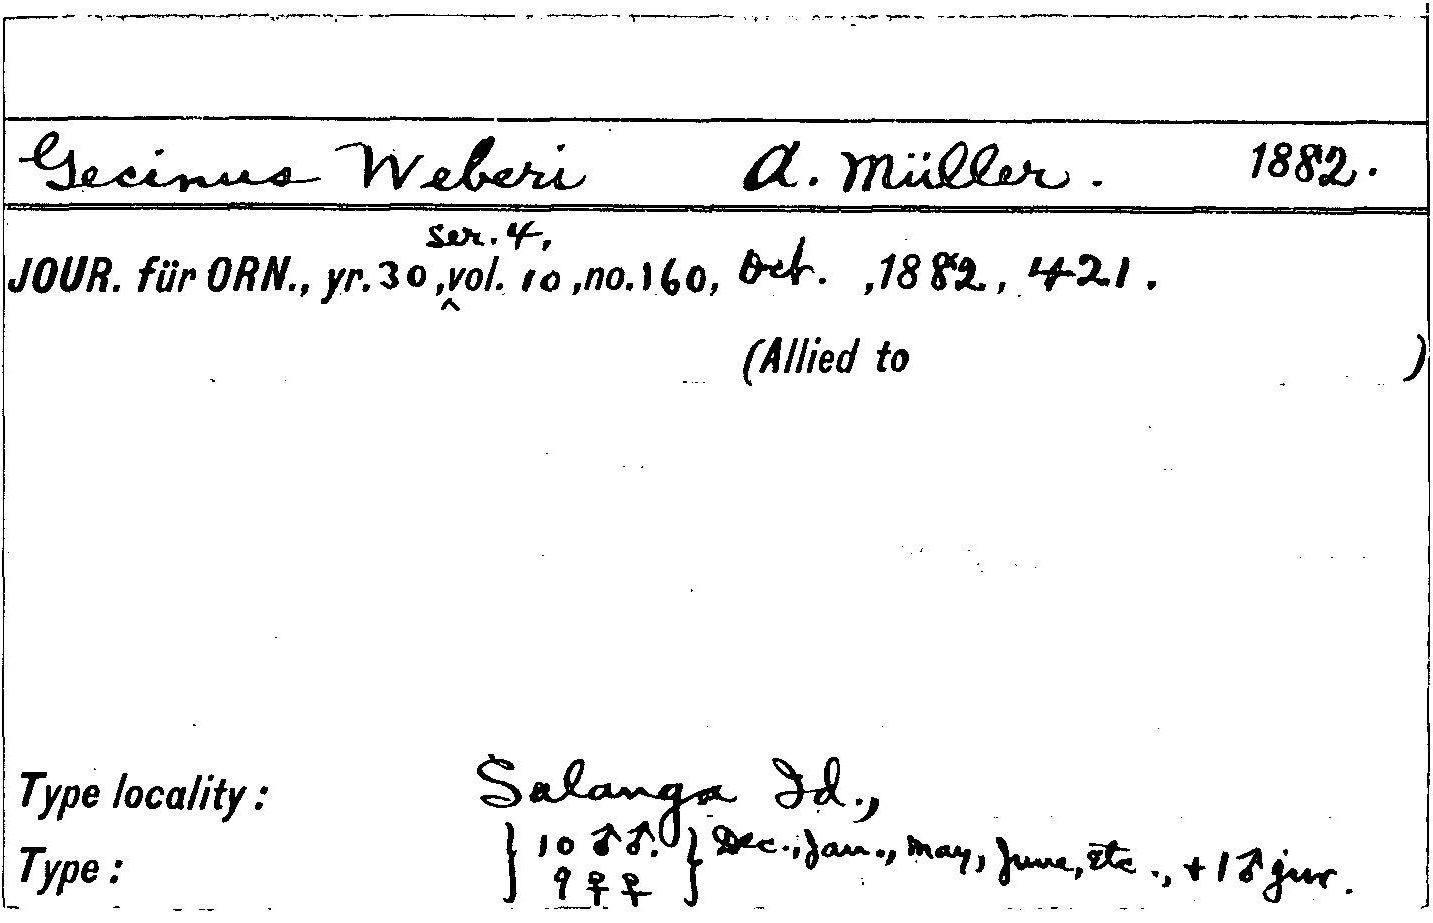 Gecinus Weberi A. Müller. 1882.
ser. 4,
JOUR. für ORN., yr. 30, ^vol. 10, no. 160, Oct. , 1882, 421.
(Allied to )
Type locality: Salanga Id.,
Type: } 10 ♂♂. } Dec., Jan., May, June, Etc., + 1 ♂ juv.
9 ♀♀